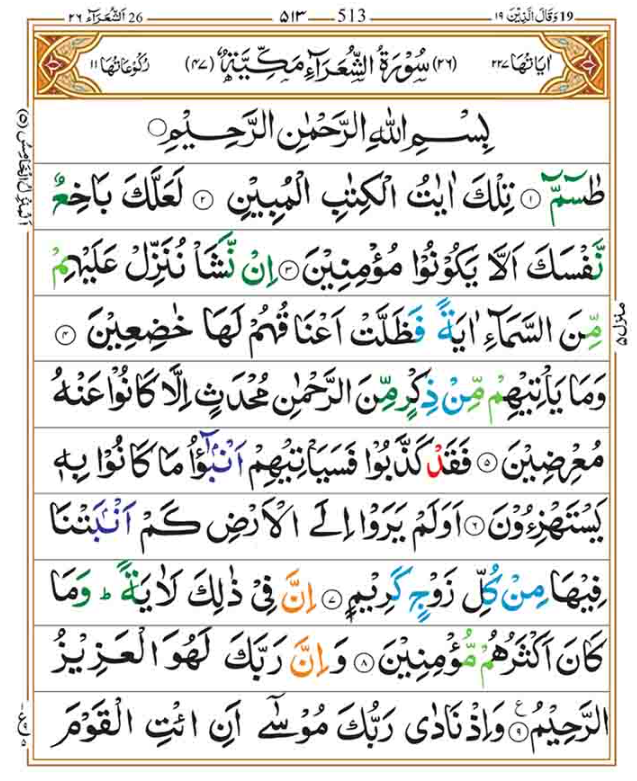 وَقَالَ الَّذِيْنَ ١٩ 19
513 ٥١٣
26 اَلشُّعَرَآء ٢٦
اٰيَاتُهَا ٢٢٧
(٢٦) سُوْرَةُ الشُّعَرَآءِ مَكِّيَّةٌ (٤٧)
رُكُوْعَاتُهَا ١١
بِسْمِ اللهِ الرَّحْمٰنِ الرَّحِيْمِ
طٰسٓمّٓ ١ تِلْكَ اٰيٰتُ الْكِتٰبِ الْمُبِيْنِ ٢ لَعَلَّكَ بَاخِعٌ
نَّفْسَكَ اَلَّا يَكُوْنُوْا مُؤْمِنِيْنَ ٣ اِنْ نَّشَاْ نُنَزِّلْ عَلَيْهِمْ
مِّنَ السَّمَآءِ اٰيَةً فَظَلَّتْ اَعْنَاقُهُمْ لَهَا خٰضِعِيْنَ ٤
وَمَا يَاْتِيْهِمْ مِّنْ ذِكْرٍ مِّنَ الرَّحْمٰنِ مُحْدَثٍ اِلَّا كَانُوْا عَنْهُ
مُعْرِضِيْنَ ٥ فَقَدْ كَذَّبُوْا فَسَيَاْتِيْهِمْ اَنْۢبٰٓؤُا مَا كَانُوْا بِهٖ
يَسْتَهْزِءُوْنَ ٦ اَوَلَمْ يَرَوْا اِلَى الْاَرْضِ كَمْ اَنْۢبَتْنَا
فِيْهَا مِنْ كُلِّ زَوْجٍ كَرِيْمٍ ٧ اِنَّ فِيْ ذٰلِكَ لَاٰيَةً ؕ وَمَا
كَانَ اَكْثَرُهُمْ مُّؤْمِنِيْنَ ٨ وَاِنَّ رَبَّكَ لَهُوَ الْعَزِيْزُ
الرَّحِيْمُ ٩ ع وَاِذْ نَادٰى رَبُّكَ مُوْسٰٓى اَنِ ائْتِ الْقَوْمَ
اَلْمَنْزِلُ الْخَامِسُ (٥)
منزل ٥